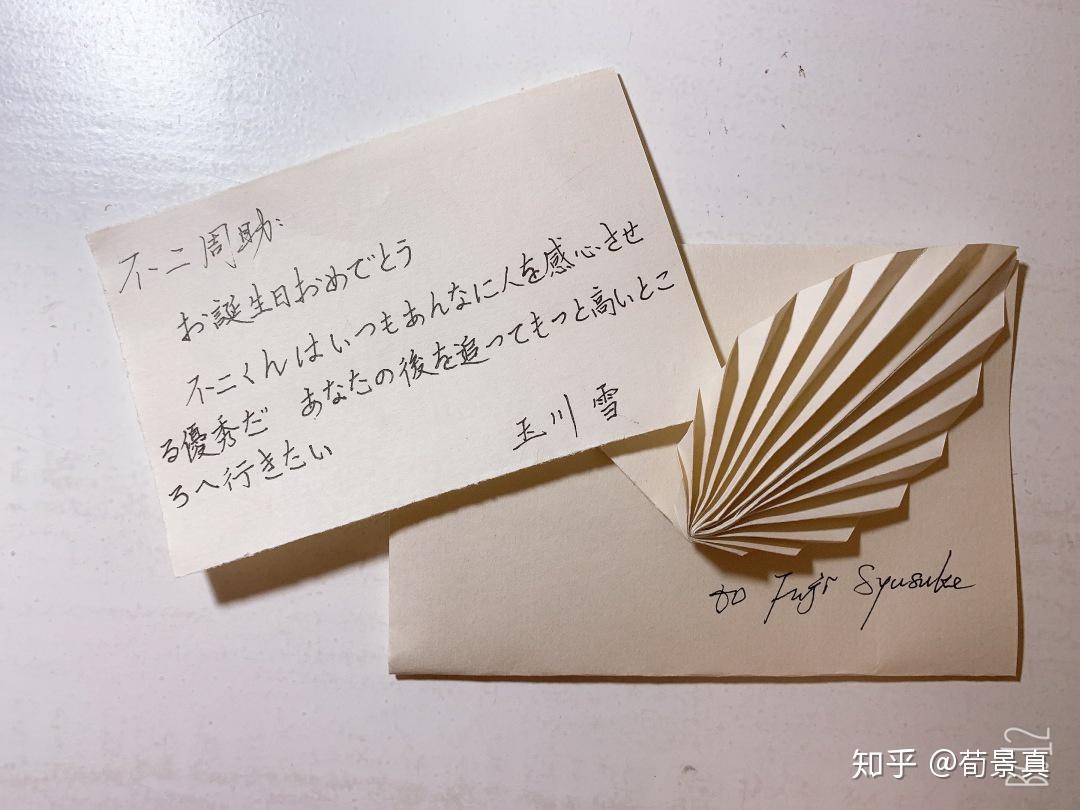 不二周助:
お誕生日おめでとう
不二くんはいつもあんなに人を感心させ
る優秀だ あなたの後を追ってもっと高いとこ
ろへ行きたい
玉川 雪
to Fuji Syusuke
知乎 @荀景真